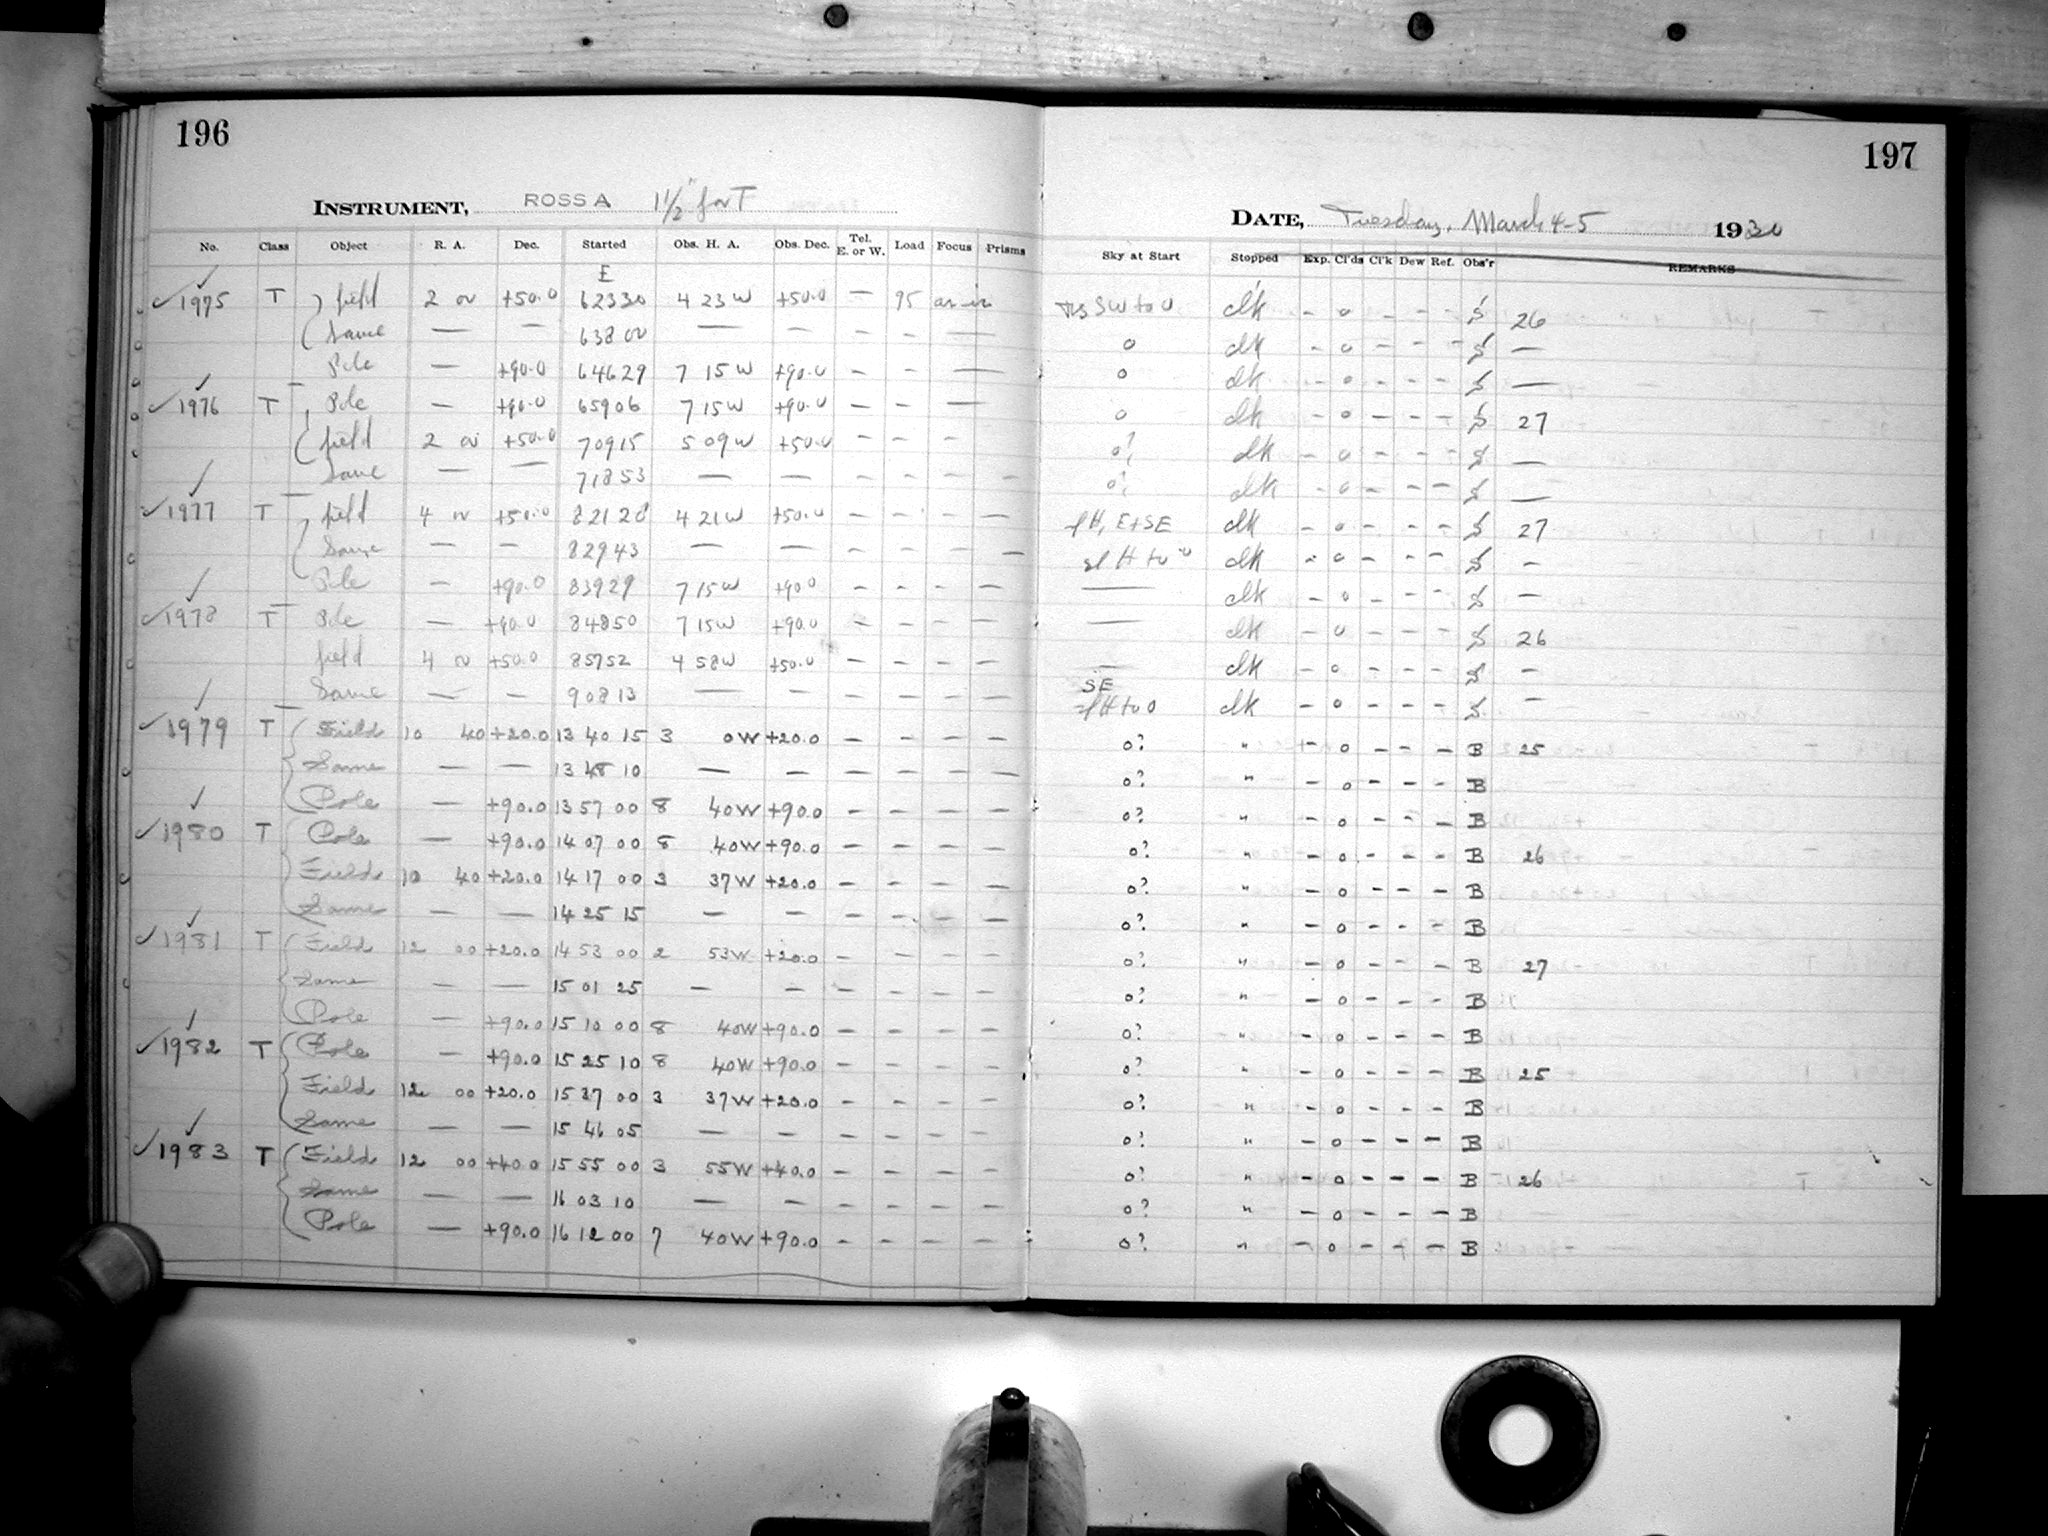 196
INSTRUMENT, ROSS A 1 1/2" for T
No. Class Object R. A. Dec. Started Obs. H. A. Obs. Dec. Tel. E. or W. Load Focus Prisms
E
✓1975 T field 2 00 +50.0 62330 4 23 W +50.0 — 95 as is
Same — — 63800 — — — —
Pole — +90.0 64629 7 15 W +90.0 — — —
✓1976 T Pole — +90.0 65906 7 15 W +90.0 — — —
field 2 00 +50.0 70915 5 09 W +50.0 — — —
Same — — 71853 — — — — — —
✓1977 T field 4 00 +50.0 82128 4 21 W +50.0 — — — —
Same — — 82943 — — — — — —
Pole — +90.0 83929 7 15 W +90.0 — — — —
✓1978 T Pole — +90.0 84850 7 15 W +90.0 — — — —
field 4 00 +50.0 85752 4 58 W +50.0 — — — —
Same — — 90813 — — — — — —
✓1979 T Field 10 40 +20.0 13 40 15 3 0 W +20.0 — — — —
Same — — 13 48 10 — — — — — —
Pole — +90.0 13 57 00 8 40 W +90.0 — — — —
✓1980 T Pole — +90.0 14 07 00 8 40 W +90.0 — — — —
Field 10 40 +20.0 14 17 00 3 37 W +20.0 — — — —
Same — — 14 25 15 — — — — — —
✓1981 T Field 12 00 +20.0 14 53 00 2 53 W +20.0 — — — —
Same — — 15 01 25 — — — — — —
Pole — +90.0 15 10 00 8 40 W +90.0 — — — —
✓1982 T Pole — +90.0 15 25 10 8 40 W +90.0 — — — —
Field 12 00 +20.0 15 37 00 3 37 W +20.0 — — — —
Same — — 15 46 05 — — — — — —
✓1983 T Field 12 00 +40.0 15 55 00 3 55 W +40.0 — — — —
Same — — 16 03 10 — — — — — —
Pole — +90.0 16 12 00 7 40 W +90.0 — — — —
197
DATE, Tuesday, March 4-5 1930
Sky at Start Stopped Exp. Cl'ds Cl'k Dew Ref. Obs'r REMARKS
SW to 0 clk - 0 - - - S 26
0 clk - 0 - - - S —
0 clk - 0 - - - S —
0 clk - 0 - - - S 27
0? clk - 0 - - - S —
0? clk - 0 - - - S —
sl H, E+SE clk - 0 - - - S 27
sl H to 0 clk - 0 - - - S -
— clk - 0 - - - S —
— clk - 0 - - - S 26
— clk - 0 - - - S -
SE
sl H to 0 clk - 0 - - - S -
0? " - 0 - - - B 25
0? " - 0 - - - B
0? " - 0 - - - B
0? " - 0 - - - B 26
0? " - 0 - - - B
0? " - 0 - - - B
0? " - 0 - - - B 27
0? " - 0 - - - B
0? " - 0 - - - B
0? " - 0 - - - B 25
0? " - 0 - - - B
0? " - 0 - - - B
0? " - 0 - - - B 26
0? " - 0 - - - B
0? " - 0 - - - B